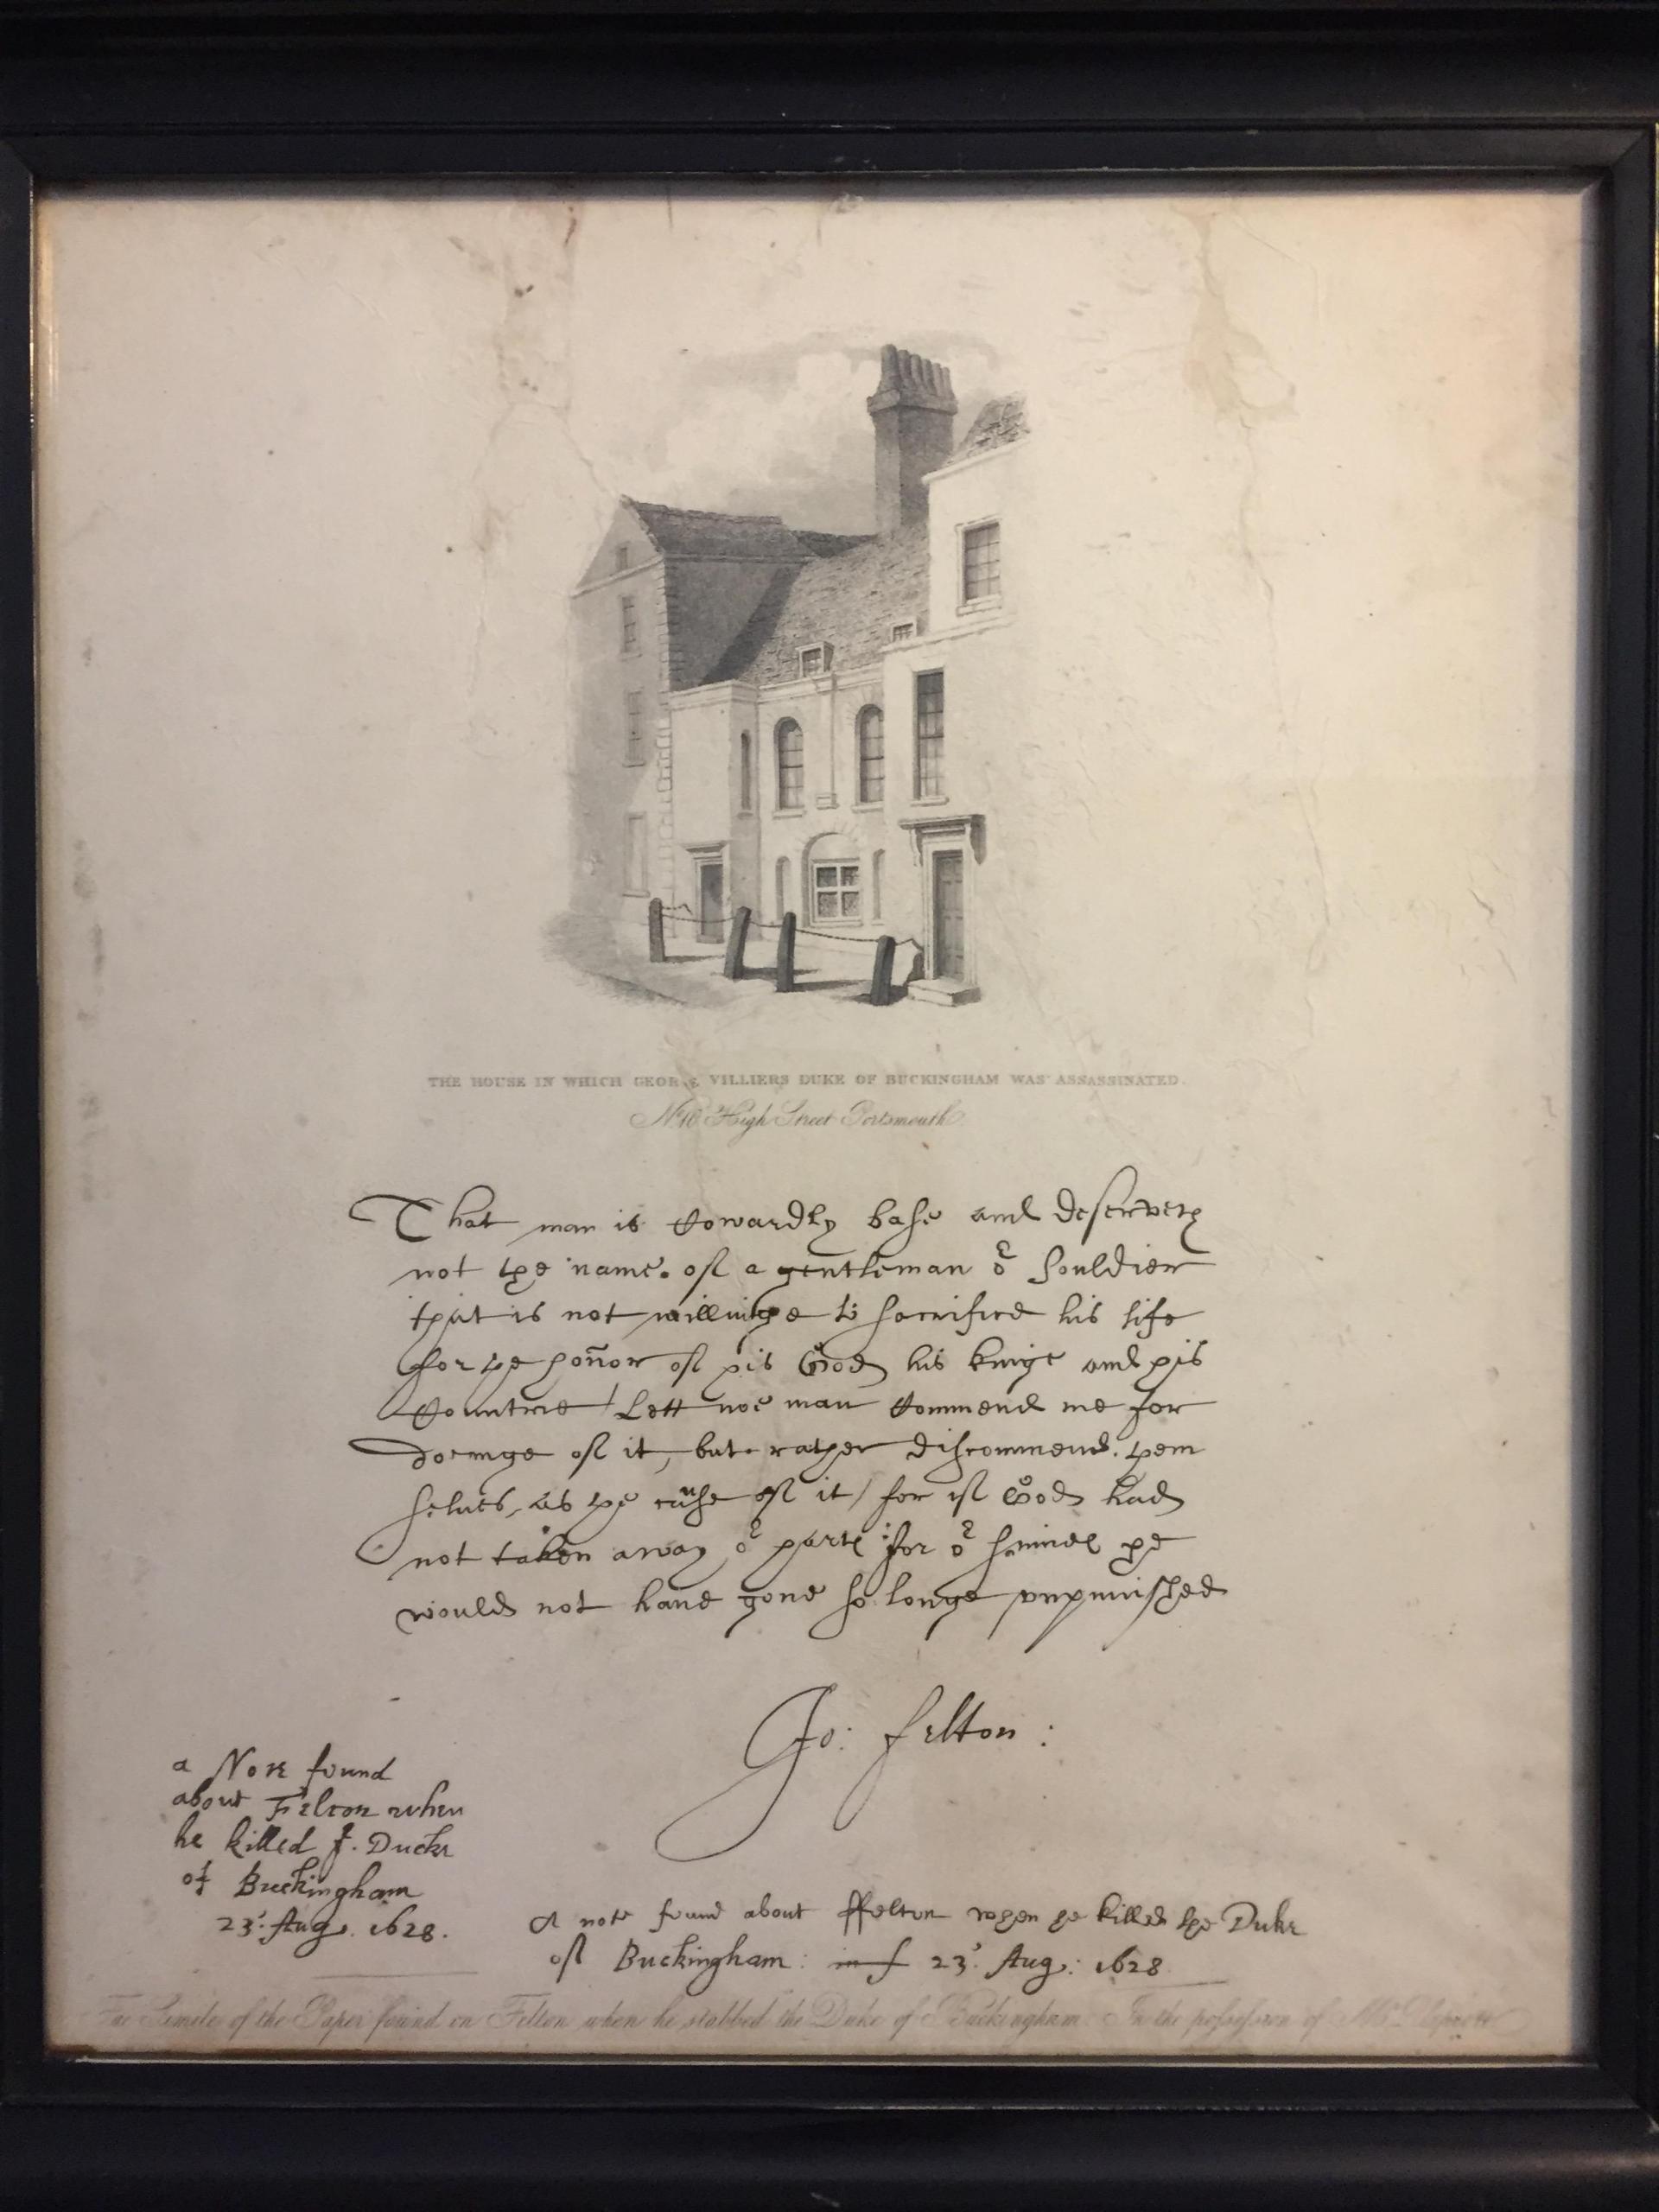 THE HOUSE IN WHICH GEORGE VILLIERS DUKE OF BUCKINGHAM WAS ASSASSINATED.
No. 10 High Street Portsmouth
That man is Cowardly base and deserveth
not the name of a gentleman or Souldier
that is not willinge to sacrifice his life
for the hon̄or of his God his kinge and his
Countrie / Lett noe man Commend me for
doeinge of it, but rather discommend them
selves as the cause of it / for if God had
not taken away or harts for or sinnes he
would not haue gone so longe vnpunished
Jo: Felton:
a Note found
about Felton when
he killed ye. Ducke
of Buckingham
23: Aug. 1628.
A note found about ffelton when he killed the Duke
of Buckingham: 23: Aug: 1628
Fac Simile of the Paper found on Felton when he stabbed the Duke of Buckingham. In the possession of